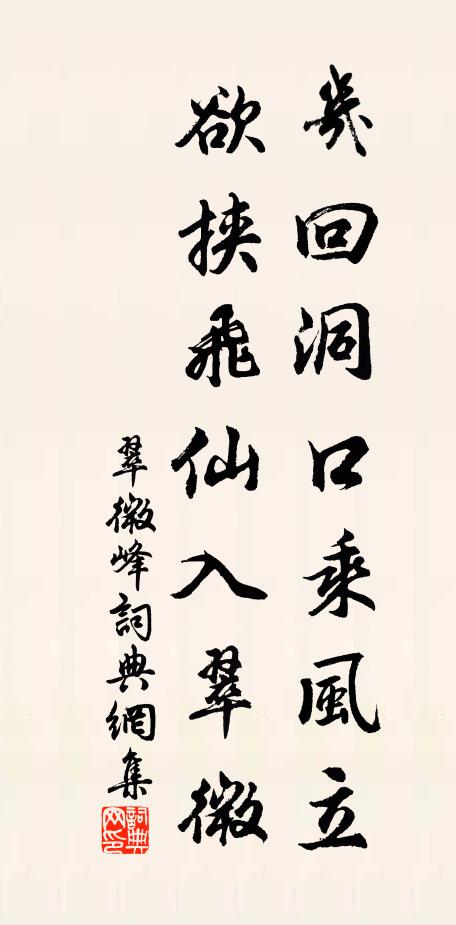 幾回洞口乘風立
欲挾飛仙入翠微
翠微峰詞典網集
詞典网印